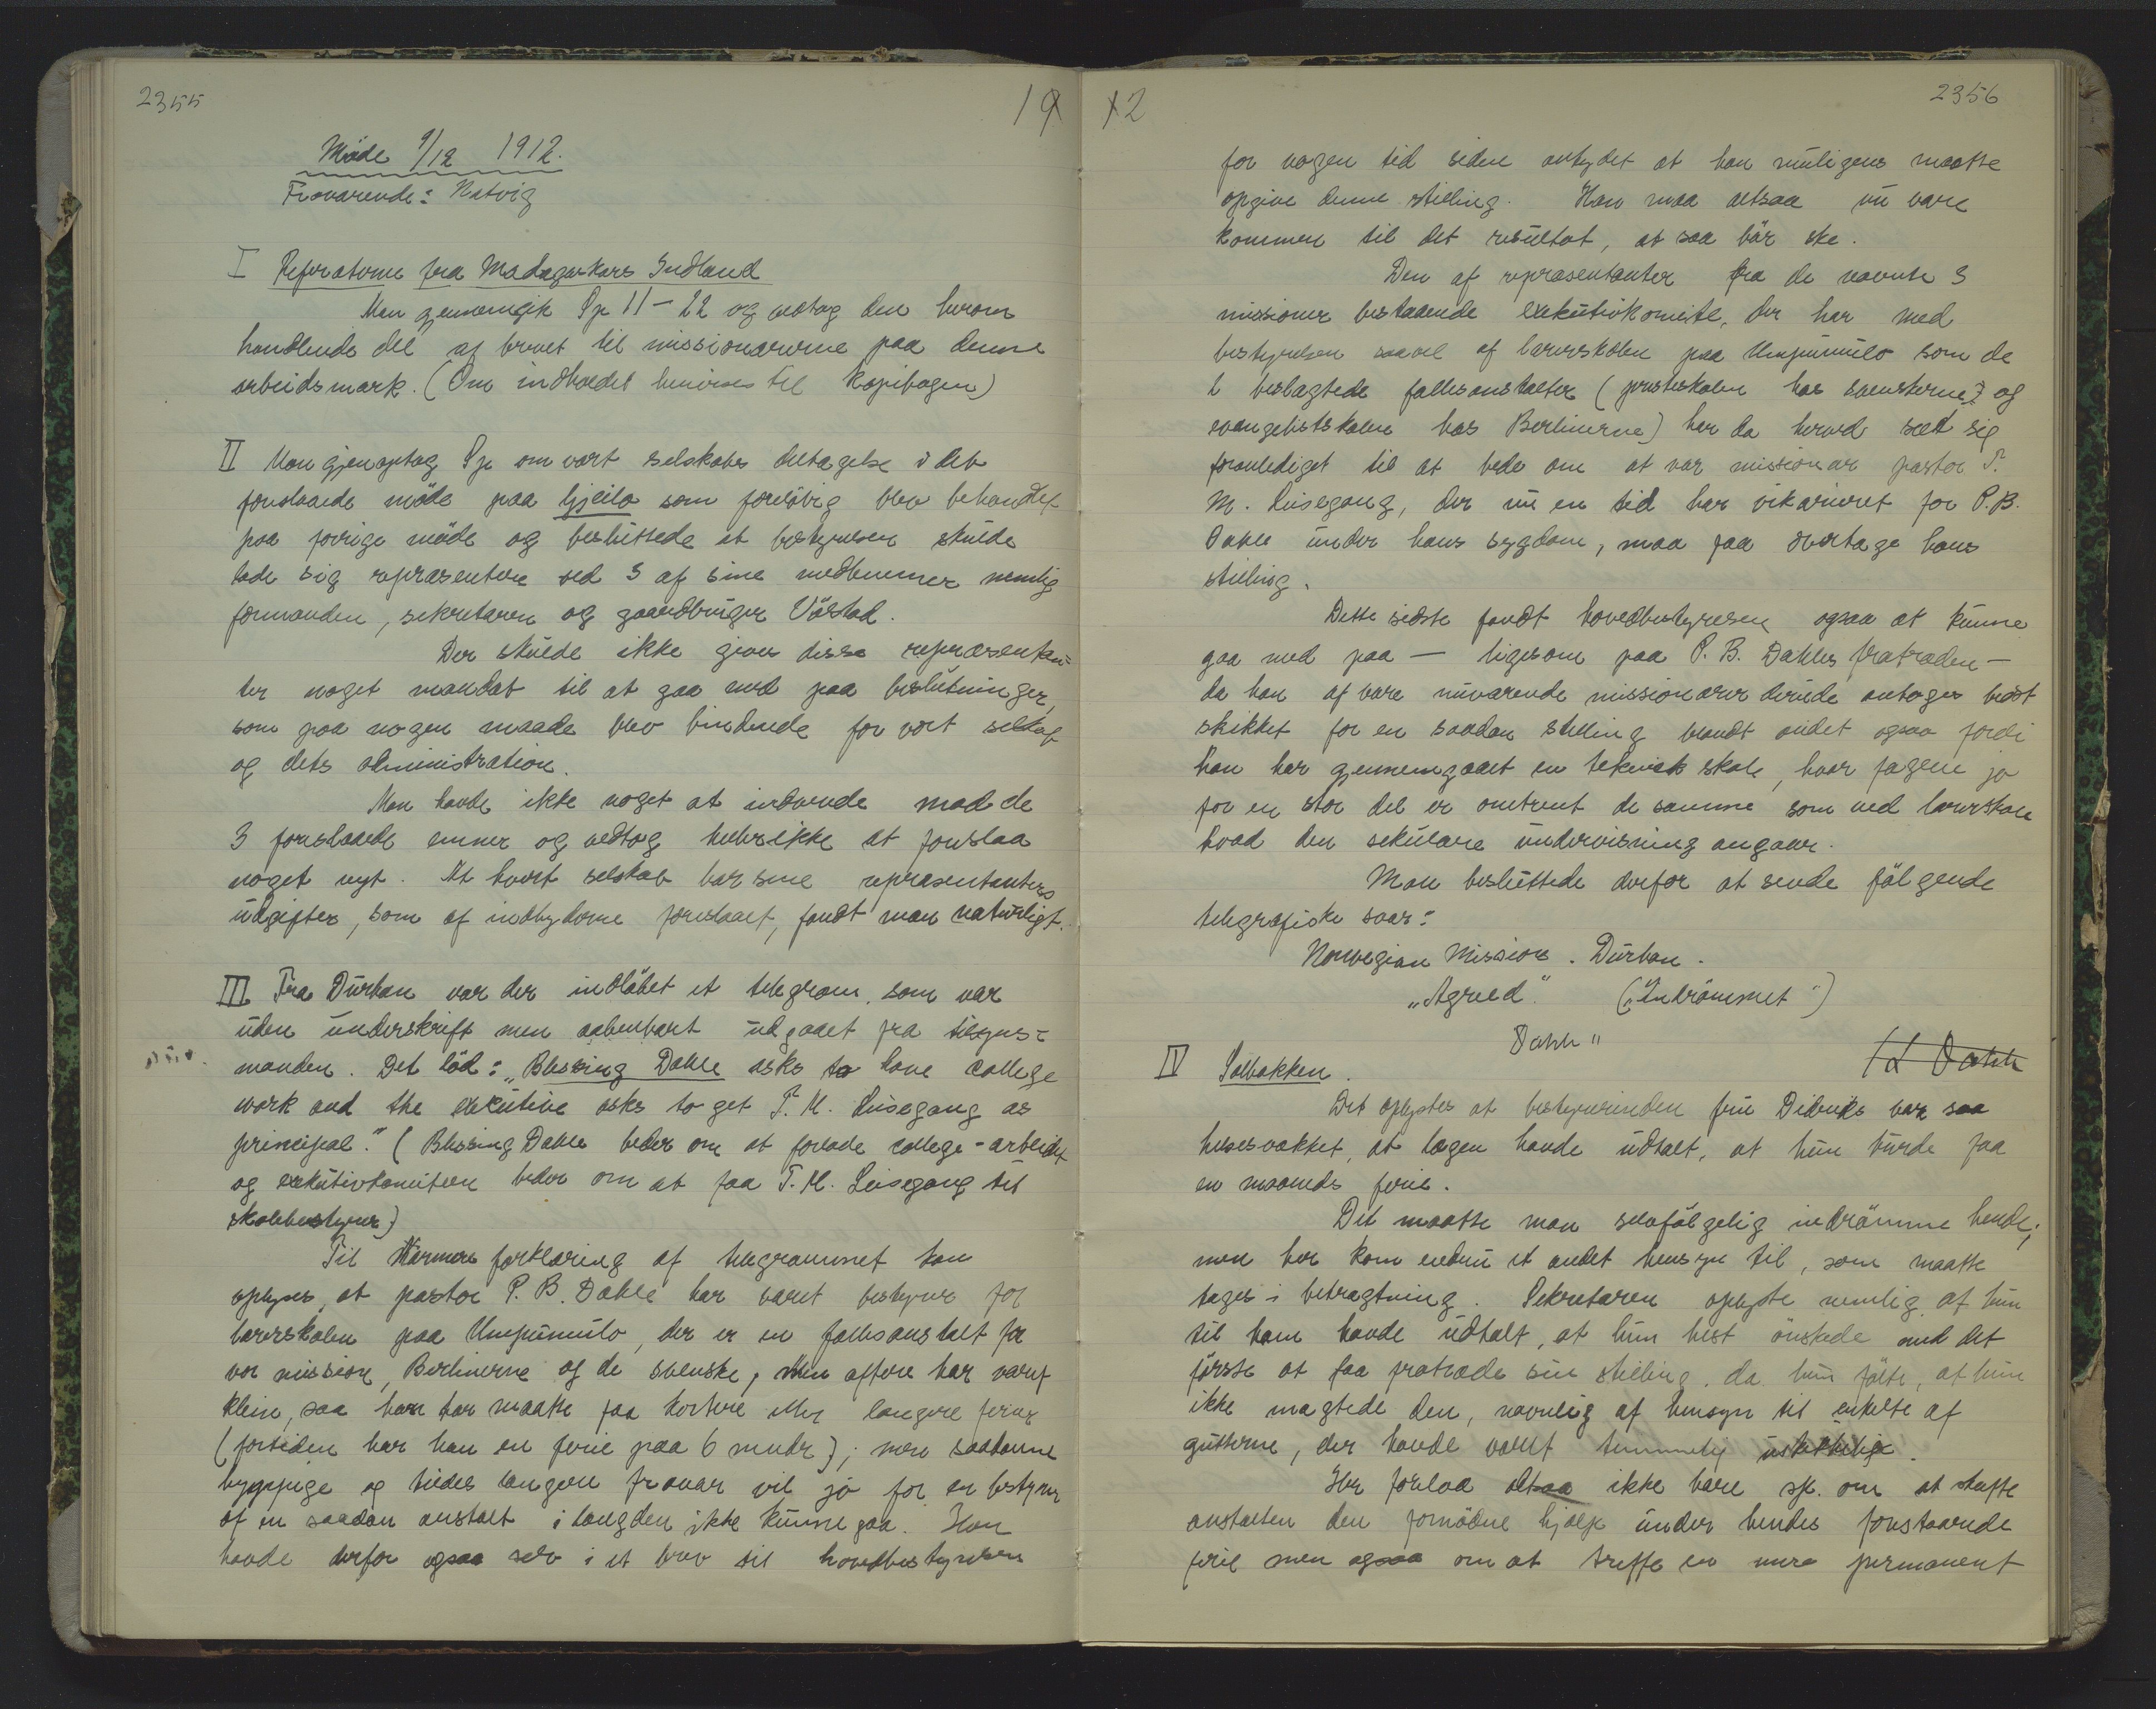 2355
19
Möde 9/12 1912.
Fraværende: Natvig
I Referaterne fra Madagaskars Indland
Man gjennemgik Sp 11-22 og vedtog den herom
handlende del af brevet til missionærerne paa denne
arbeidsmark. (Om indholdet henvises til kopibogen)
II Man gjenoptog Sp om vort selskabs deltagelse i det
foreslaaede möde paa Gjeilo som forelöbig blev behandlet
paa forrige möde og besluttede at bestyrelsen skulde
lade sig repræsentere ved 3 af sine medlemmer nemlig
formanden, sekretæren og gaardbruger Våstad.
Der skulde ikke gives disse repræsentan=
ter noget mandat til at gaa med paa beslutninger,
som paa nogen maade blev bindende for vort selskab
og dets administration.
Man havde ikke noget at indvende mod de
3 foreslaaede emner og vedtog hellerikke at foreslaa
noget nyt. At hvert selskab bar sine repræsentanters
udgifter, som af indbyderne foreslaaet, fandt man naturligt.
III Fra Durban var der indlöbet et telegram, som var
uden underskrift men aabenbart udgaaet fra tilsyns=
manden. Det löd: "Blessing Dahle asks to leave college
work and the executive asks to get T. M. Leisegang as
principal." (Blessing Dahle beder om at forlade college-arbeidet
og exekutivkomiteen beder om at faa T. M. Leisegang til
skolebestyrer)
Til nærmere forklaring af telegrammet kan
oplyses, at pastor P. B. Dahle har været bestyrer for
lærerskolen paa Umpumulo, der er en fællesanstalt for
vor mission, Berlinerne og de svenske, men oftere har været
klein, saa han har maatte faa kortere eller længere ferier
(fortiden har han en ferie paa 6 mndr); men saadanne
hyppige og tildels længere fravær vil jo for en bestyrer
af en saadan anstalt i længden ikke kunne gaa. Han
havde derfor ogsaa selv i et brev til hovedbestyrelsen
12
2356
for nogen tid siden antydet at han muligens maatte
opgive denne stilling. Han maa altsaa nu være
kommen til det resultat, at saa bör ske.
Den af repræsentanter fra de nævnte 3
missioner bestaaende exekutivkomite, der har med
bestyrelsen saavel af lærerskolen paa Umpumulo som de
2 beslægtede fællesanstalter (presteskolen hos svenskerne og
evangelistskolen hos Berlinerne) har da herved seet sig
foranlediget til at bede om at vor missionær pastor T.
M. Leisegang, der nu en tid har vikarieret for P.B.
Dahle under hans sygdom, maa faa overtage hans
stilling.
Dette sidste fandt hovedbestyrelsen ogsaa at kunne
gaa med paa — ligesom paa P. B. Dahles fratræden —
da han af vore nuværende missionærer derude antages bedst
skikket for en saadan stilling blandt andet ogsaa fordi
han har gjennemgaaet en teknisk skole, hvor fagene jo
for en stor del er omtrent de samme som ved lærerskolen
hvad den sekulære undervisning angaar.
Man besluttede derfor at sende fölgende
telegrafiske svar:
Norwegian Mission. Durban.
"Agreed." ("Indrömmet")
Dahle"
IV Solbakken.
Det oplystes at bestyrerinden fru Didriks var saa
helsesvækket, at lægen havde udtalt, at hun burde faa
en maaneds ferie.
Det maatte man selvfölgelig indrömme hende;
men her kom endnu et andet hensyn til, som maatte
tages i betragtning. Sekretæren oplyste nemlig at hun
til ham havde udtalt, at hun helst önskede med det
förste at faa fratræde sin stilling, da hun fölte, at hun
ikke magtede den, navnlig af hensyn til enkelte af
gutterne, der havde været temmelig uskikkelige.
Her forelaa altsaa ikke bare sp. om at skaffe
anstalten den fornödne hjælp under hendes forestaaende
ferie men ogsaa om at træffe en mere permanent